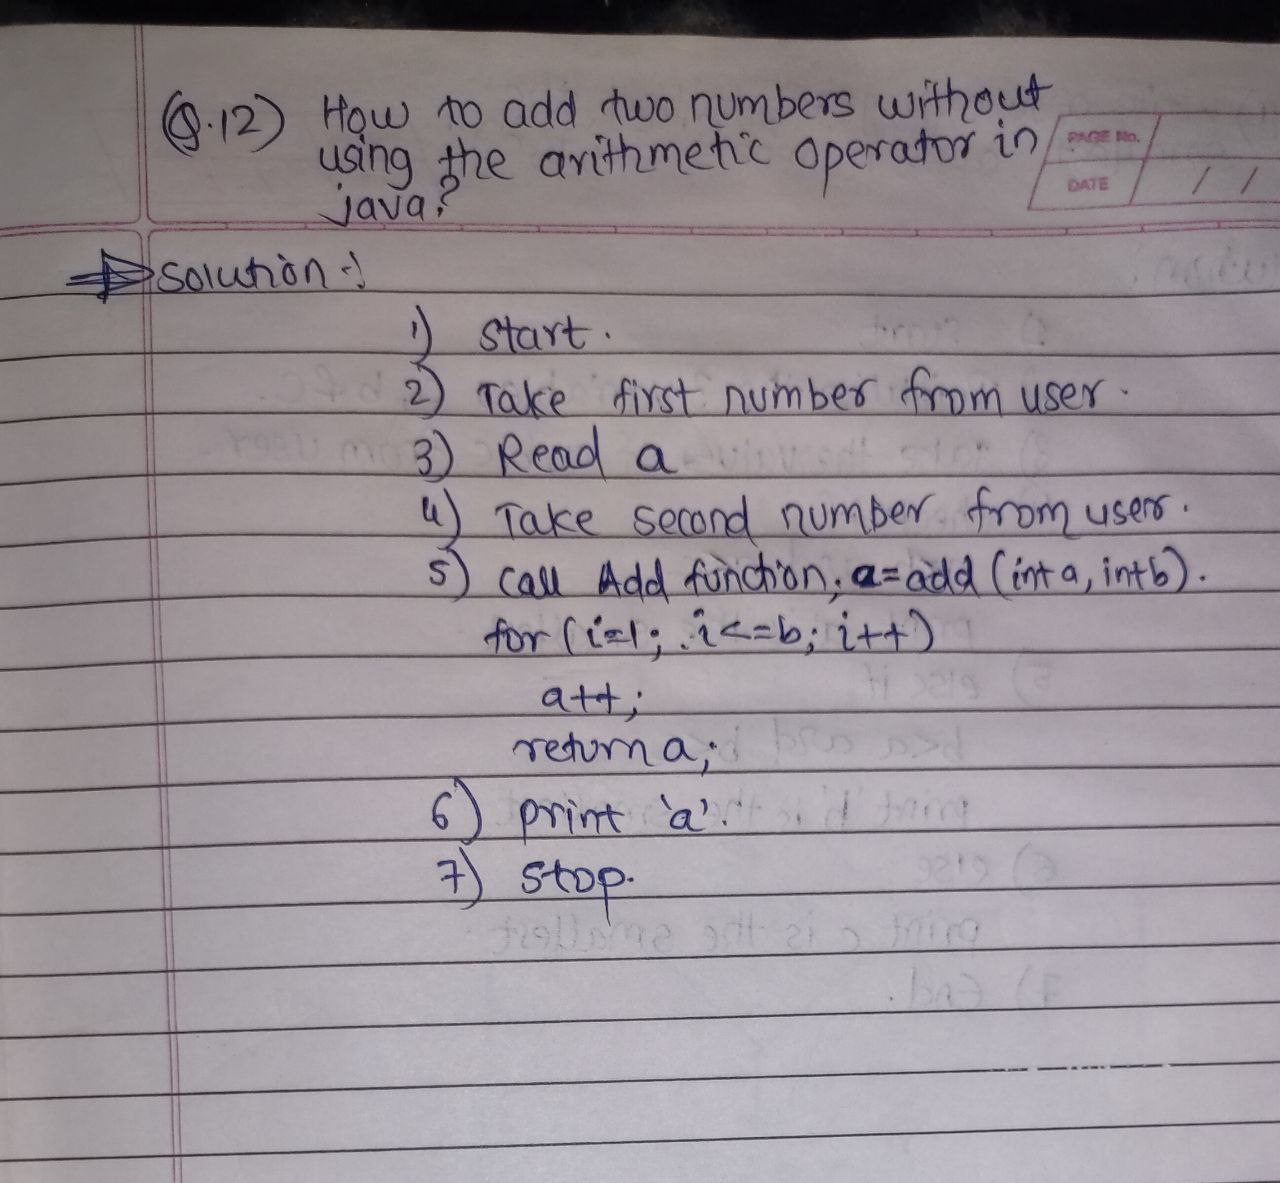 Q.12) How to add two numbers without
using the arithmetic operator in
java?
PAGE No.
DATE / /
Solution :-
1) Start.
2) Take first number from user.
3) Read a
4) Take second number from user.
5) Call Add function, a=add (int a, int b).
for (i=1; i<=b; i++)
a++;
return a;
6) print 'a'.
7) Stop.